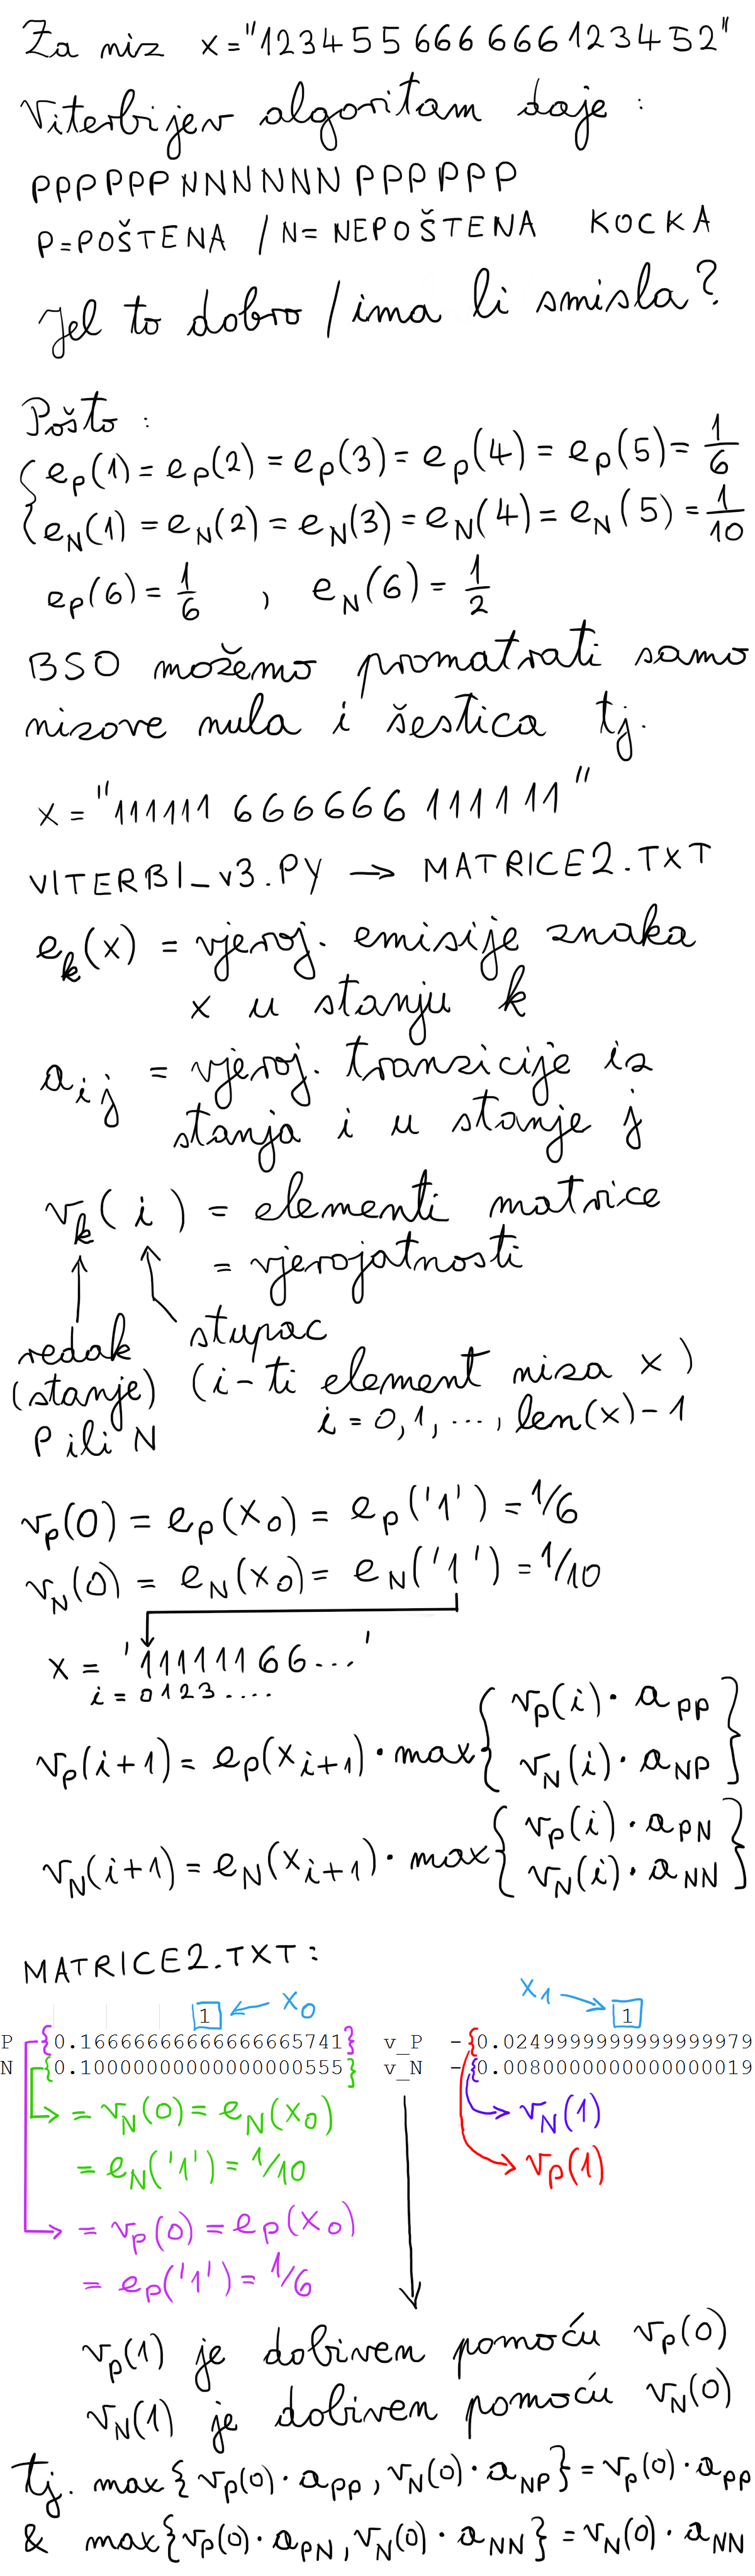 Za niz x="123455666666123452"
Viterbijev algoritam daje :
PPPPPPNNNNNNPPPPPP
P=POŠTENA / N= NEPOŠTENA KOCKA
Jel to dobro / ima li smisla?
Pošto :
{ e_P(1) = e_P(2) = e_P(3) = e_P(4) = e_P(5) = 1/6
{ e_N(1) = e_N(2) = e_N(3) = e_N(4) = e_N(5) = 1/10
e_P(6) = 1/6 , e_N(6) = 1/2
BSO možemo promatrati samo
nizove nula i šestica tj.
x = "111111 666666 111111"
VITERBI_v3.PY → MATRICE2.TXT
e_k(x) = vjeroj. emisije znaka
x u stanju k
a_ij = vjeroj. tranzicije iz
stanja i u stanje j
v_k(i) = elementi matrice
= vjerojatnosti
redak stupac
(stanje) (i-ti element niza x)
P ili N i = 0,1, ..., len(x)-1
v_P(0) = e_P(x_0) = e_P('1') = 1/6
v_N(0) = e_N(x_0) = e_N('1') = 1/10
x = '11111166...'
i = 0123....
v_P(i+1) = e_P(x_{i+1}) · max{ v_P(i) · a_PP
v_N(i) · a_NP }
v_N(i+1) = e_N(x_{i+1}) · max{ v_P(i) · a_PN
v_N(i) · a_NN }
MATRICE2.TXT:
1 ← x_0 x_1 → 1
P -{0.16666666666666665741} v_P -{0.0249999999999999979
N -{0.10000000000000000555} v_N -{0.0080000000000000019
= v_N(0) = e_N(x_0) → v_N(1)
= e_N('1') = 1/10 → v_P(1)
= v_P(0) = e_P(x_0)
= e_P('1') = 1/6
v_P(1) je dobiven pomoću v_P(0)
v_N(1) je dobiven pomoću v_N(0)
tj. max{v_P(0) · a_PP, v_N(0) · a_NP} = v_P(0) · a_PP
& max{v_P(0) · a_PN, v_N(0) · a_NN} = v_N(0) · a_NN